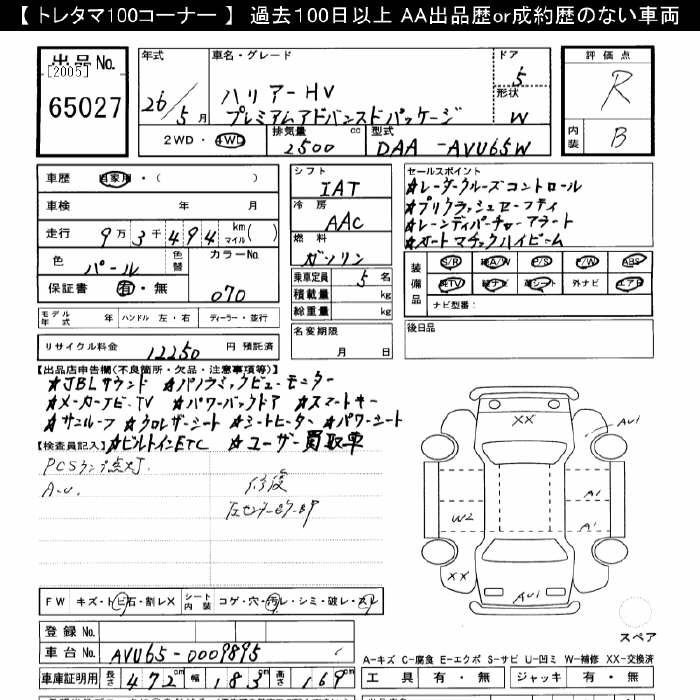 【 トレタマ100コーナー 】 過去100日以上 AA出品歴or成約歴のない車両
出品No. [2005] 65027
年式 26/5月
車名・グレード ハリアーHV プレミアムアドバンスドパッケージ
ドア 5
形状 W
評価点 R
内装 B
2WD・4WD 排気量 2500 cc 型式 DAA-AVU65W
車歴 自家用・( )
車検 年 月
走行 9万3千494 km マイル( )
色 パール 色替 カラーNo. 070
保証書 有・無
モデル年式 年 ハンドル 左・右 ディーラー・並行
リサイクル料金 12250 円 預託済
シフト IAT
冷房 AAC
燃料 ガソリン
乗車定員 5 名
積載量 kg
総重量 kg
名変期限 月 日
セールスポイント
☆レーダークルーズコントロール
☆プリクラッシュセーフティ
☆レーンディパーチャーアラート
☆オートマチックハイビーム
装備品 S/R A/W P/S P/W ABS
純TV 純ナビ 革シート 外ナビ エアB
ナビ型番:
後日品
【出品店申告欄(不良箇所・欠品・注意事項等)】
☆JBLサウンド ☆パノラミックビューモニター
☆メーカーナビ・TV ☆パワーバックドア ☆スマートキー
☆サンルーフ ☆クロレザーシート ☆シートヒーター ☆パワーシート
【検査員記入】 ☆ビルトインETC ☆ユーザー買取車
PCSランプ点灯.
A・u.
修復
左センターピラー凹
XX
AU1
A1
W2
A1
XX
AU1
スペア
FW キズ・トビ石・割レX シート内装 コゲ・穴・汚レ・シミ・破レ・スレ
登録No.
車台No. AVU65-0009895
車庫証明用 長さ 472 cm 幅 183 cm 高さ 169 cm
A-キズ C-腐食 E-エクボ S-サビ U-凹ミ W-補修 XX-交換済
工具 有・無 ジャッキ 有・無